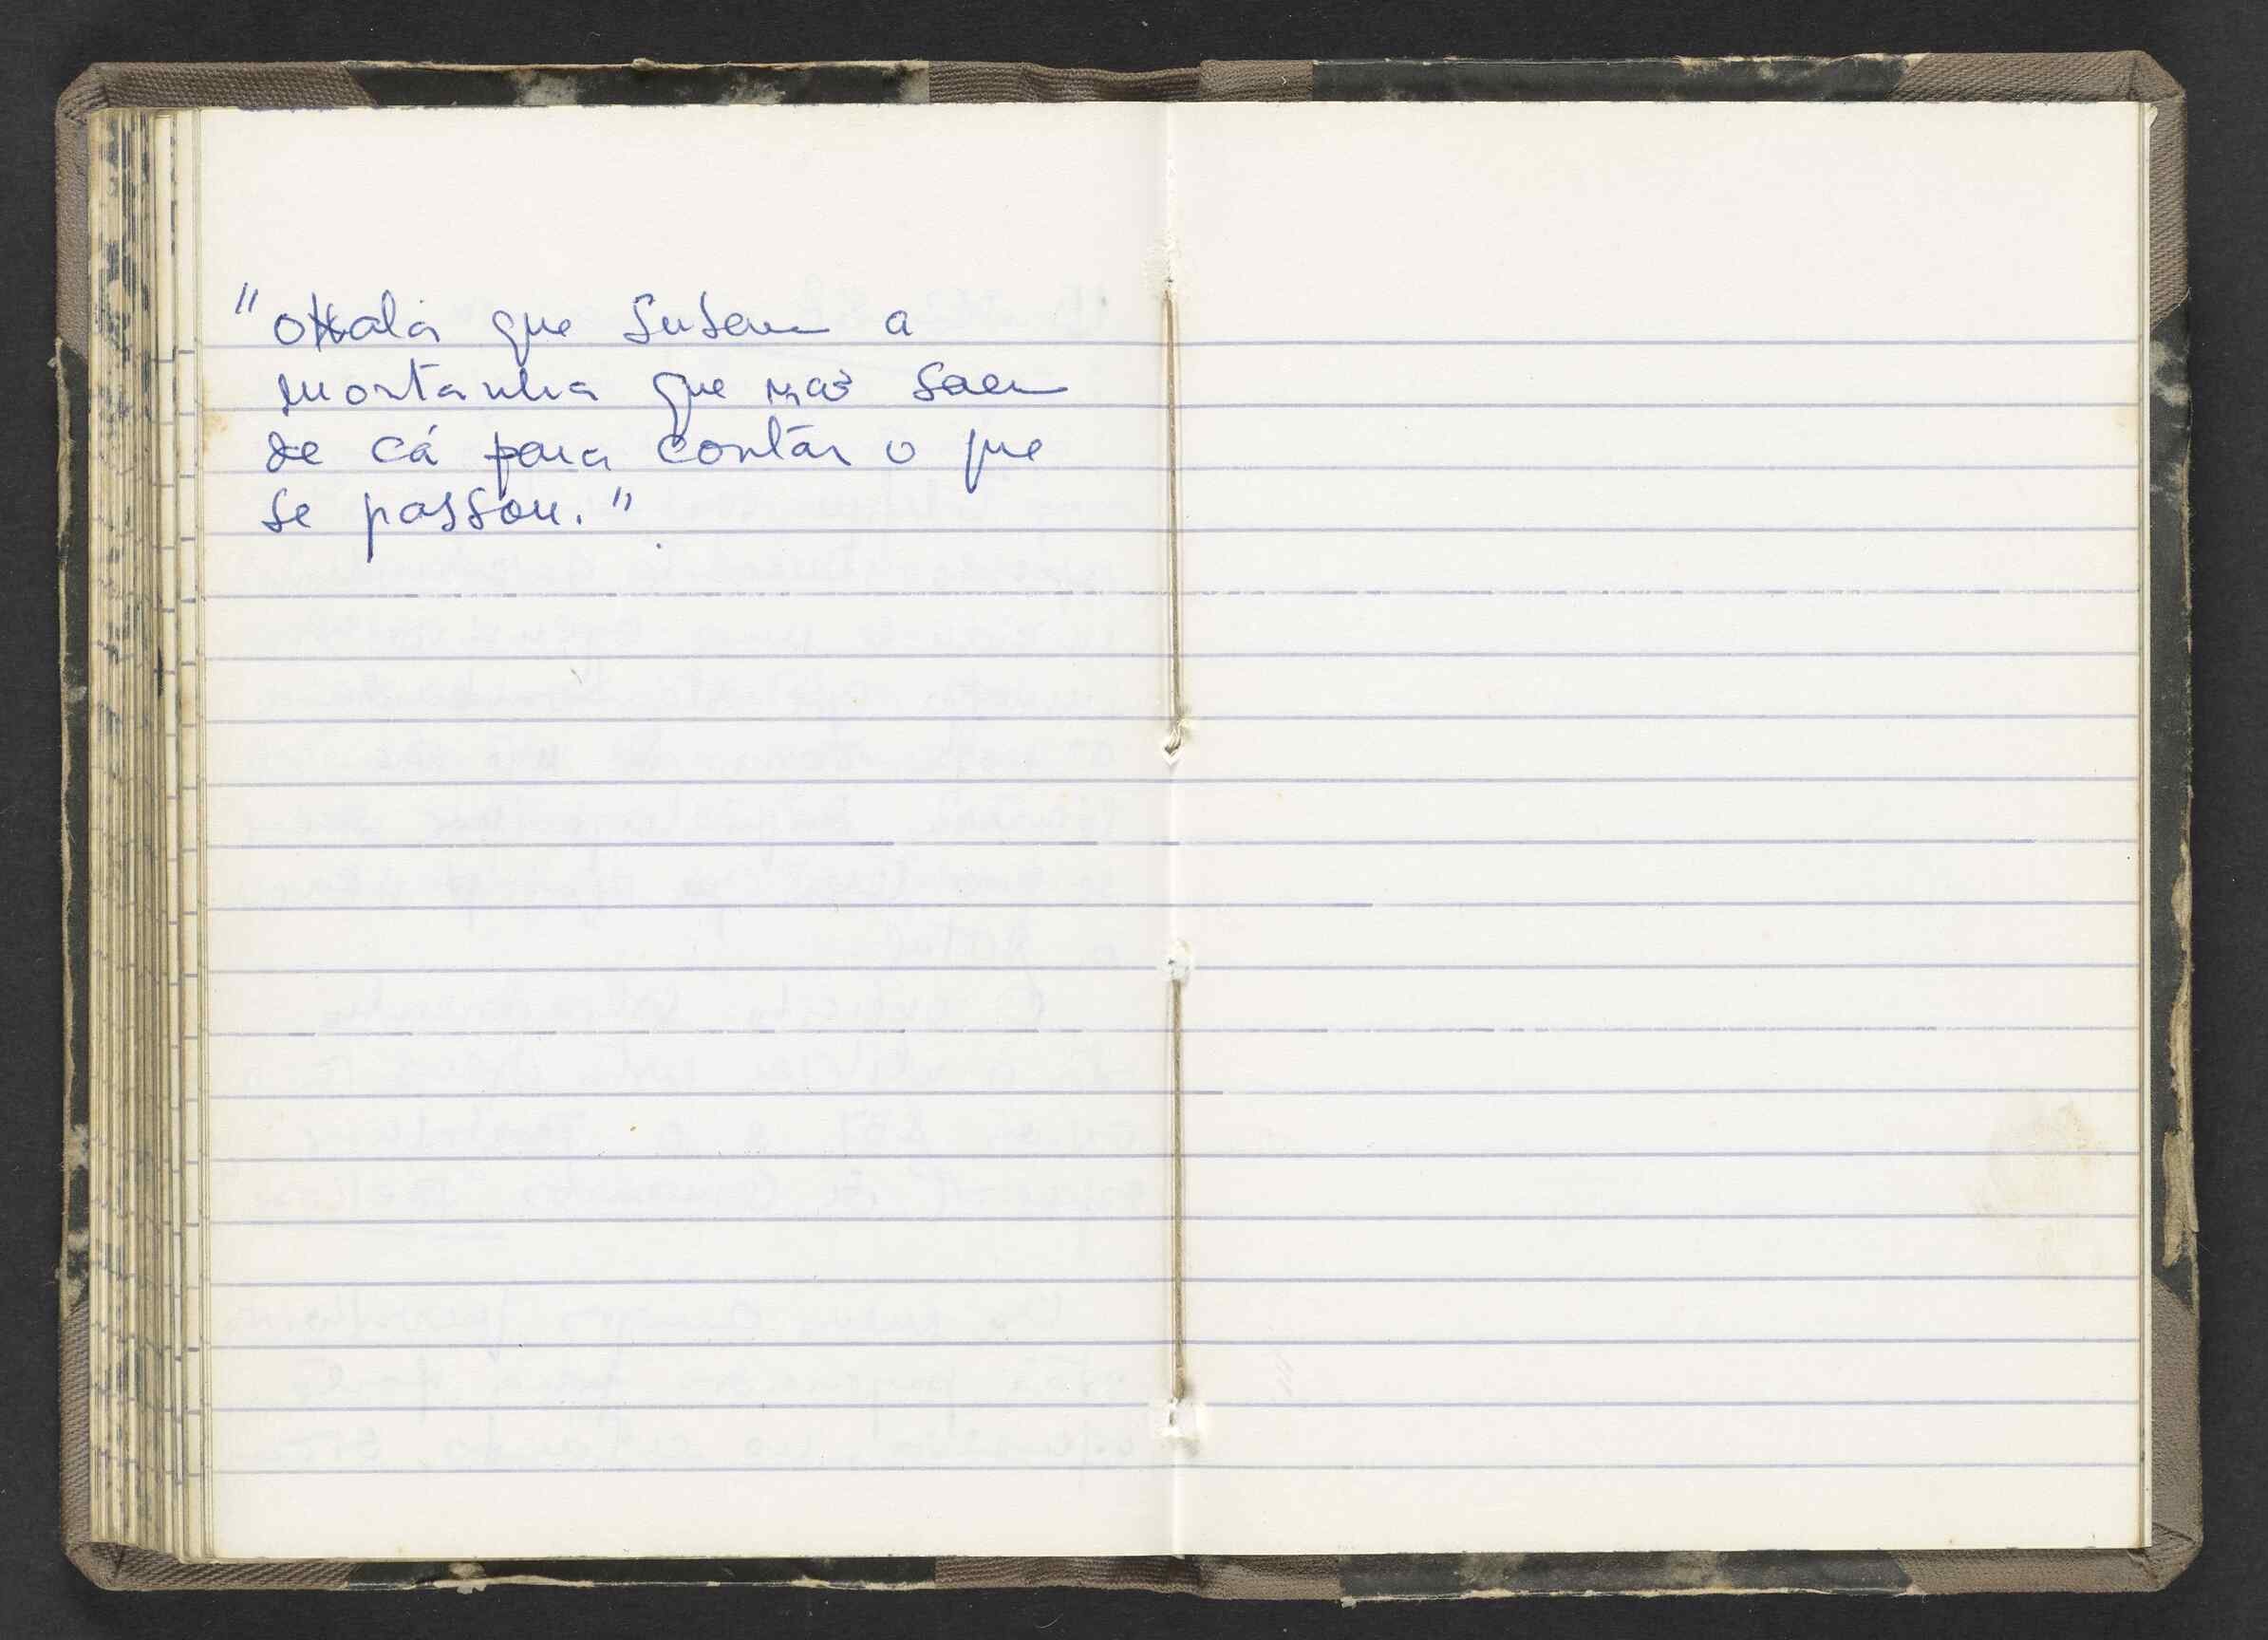 "oxalá que subam a
montanha que não saem
de cá para contar o que
se passou."